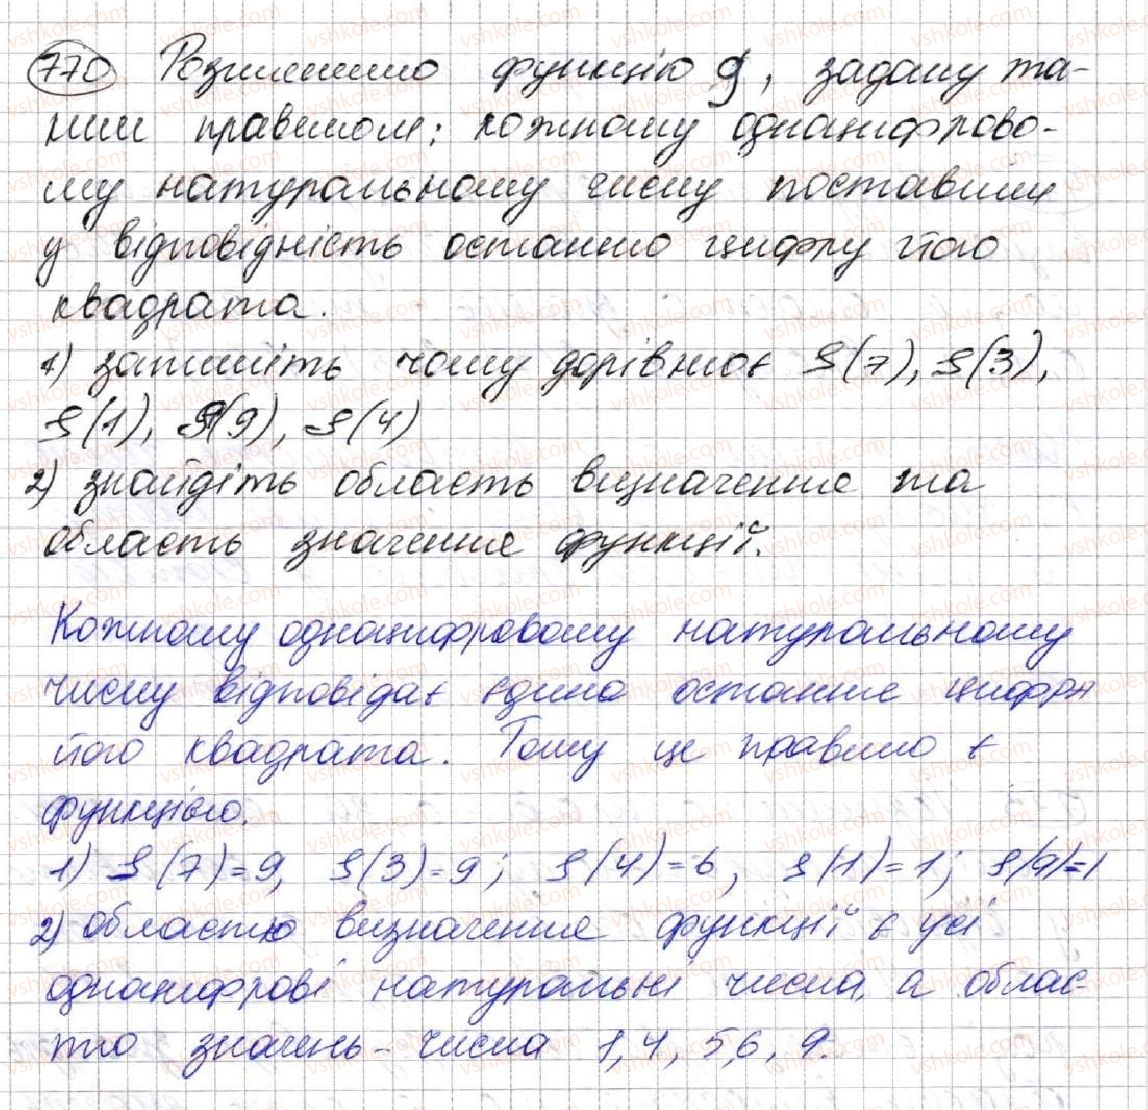 770 Розглянемо функцію g, задану та-
ким правилом: кожному одноцифрово-
му натуральному числу поставили
у відповідність останню цифру його
квадрата.
1) запишіть чому дорівнює g(7), g(3),
g(1), g(9), g(4)
2) знайдіть область визначення та
область значення функції.
Кожному одноцифровому натуральному
числу відповідає єдина остання цифра
його квадрата. Тому це правило є
функцією.
1) g(7)=9, g(3)=9; g(4)=6, g(1)=1; g(9)=1
2) областю визначення функції є усі
одноцифрові натуральні числа, а облас-
тю значень - числа 1,4, 5,6, 9.